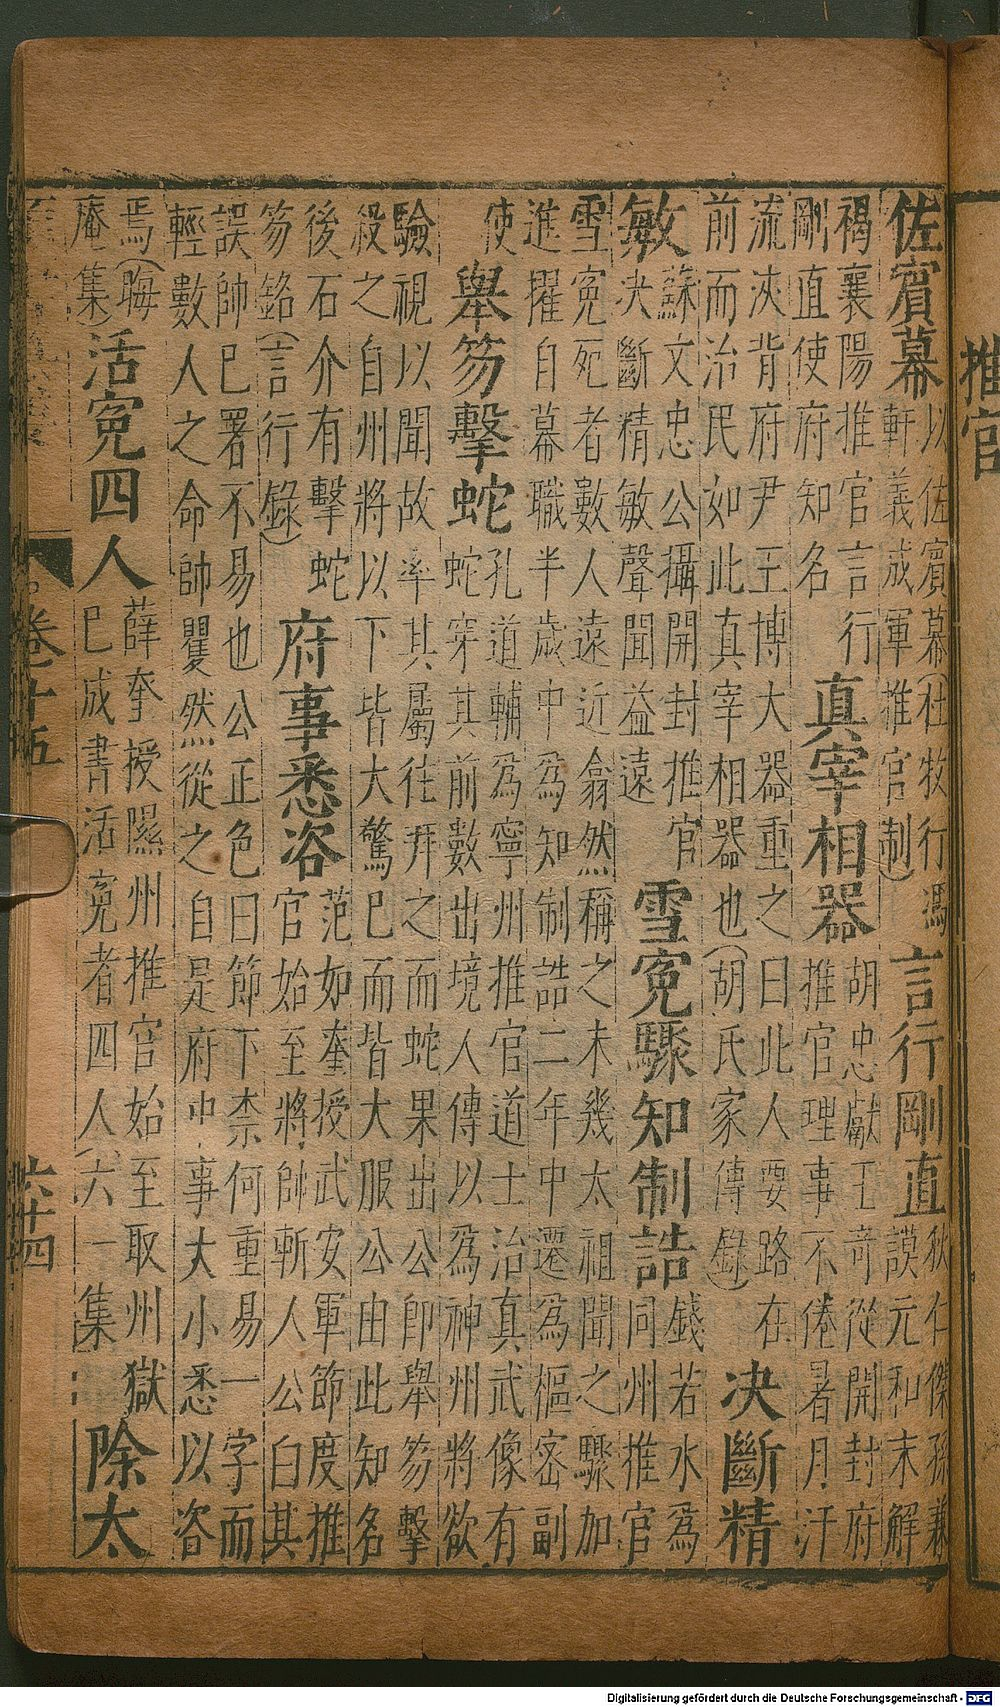 推官
佐賔幕
以佐賔幕(杜牧行馮
軒義成軍推官制)
言行剛直
狄仁傑孫兼
謨元和末解
褐襄陽推官言行
剛直使府知名
真宰相器
胡忠獻王竒從開封府
推官理事不倦暑月汗
流浹背府尹王博大器重之曰此人要路在
前而治民如此真宰相器也(胡氏家傳錄)
決斷精
敏
蘇文忠公攝開封推官
決斷精敏聲聞益遠
雪寃驟知制誥
錢若水為
同州推官
雪寃死者數人遠近翕然稱之未幾太祖聞之驟加
進擢自幕職半歲中為知制誥二年中遷為樞密副
使
舉笏擊蛇
孔道輔為寧州推官道士治真武像有
蛇穿其前數出境人傳以為神州將欲
驗視以聞故率其屬往拜之而蛇果出公即舉笏擊
殺之自州將以下皆大驚巳而皆大服公由此知名
後石介有擊蛇
笏銘(言行錄)
府事悉咨
范如奎授武安軍節度推
官始至將帥斬人公白其
誤帥巳署不易也公正色曰節下柰何重易一字而
輕數人之命帥矍然從之自是府中事大小悉以咨
焉(晦
庵集)
活寃四人
薛奎授隰州推官始至取州獄
巳成書活寃者四人(六一集)
除太
卷十五
六十四
Digitalisierung gefördert durch die Deutsche Forschungsgemeinschaft - DFG